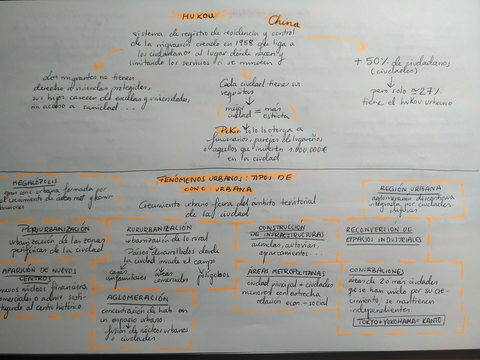 HUKOU China
sistema de registro de residencia y control
de la migración creado en 1958 que liga a
los ciudadanos al lugar donde nacen y
limitando los servicios si se mudan
los migrantes no tienen
derecho a viviendas protegidas,
sus hijos carecen de escuelas y universidades,
sin acceso a sanidad...
Cada ciudad tiene sus
requisitos
mejor ciudad = más estricta
Pekín solo lo otorga a
funcionarios, parejas de lugareños
o aquellos que invierten 1.000.000€
en la ciudad
+ 50% de ciudadanos
(ciudades)
pero solo ≈27%
tiene el hukou urbano
FENÓMENOS URBANOS: TIPOS DE
CONC. URBANA
Crecimiento urbano fuera del ámbito territorial
de la ciudad
MEGALÓPOLIS
gran conc. urbana formada por
REGIÓN URBANA
aglomeración discontinua
integrada por ciudades
PERIURBANIZACIÓN
urbanización de las zonas
periféricas de la ciudad
RURURBANIZACIÓN
urbanización de lo rural
desde la
ciudad invade el campo
casas unifamiliares
áreas comerciales
polígonos
CONSTRUCCIÓN
DE INFRAESTRUCTURAS
autovías,
aparcamientos...
RECONVERSIÓN DE
ESPACIOS INDUSTRIALES
APARICIÓN DE NUEVOS
CENTROS
nuevos núcleos financieros,
comerciales o
al centro histórico
AGLOMERACIÓN
concentración de hab. en
un espacio urbano
fusión de núcleos urbanos
o ciudades
ÁREAS METROPOLITANAS
ciudad principal + ciudades
menores con estrecha
relación econ.-social
CONURBACIONES
áreas de 2 o más ciudades
que se han unido por su cre-
cimiento, se mantienen
independientes
TOKYO + YOKOHAMA = KANTO